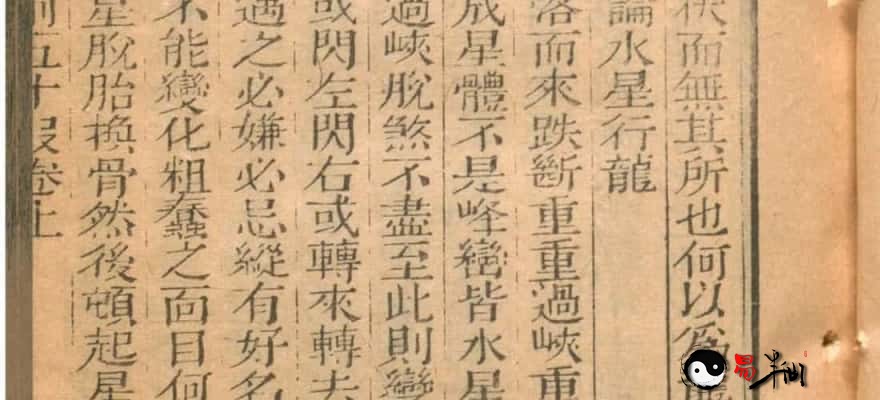 而無其所也何以爲
論水星行龍
落而來跌斷重重過峽重
成星體不是峰巒皆水星
過峽脫煞不盡至此則變
或閃左閃右或轉來轉去
遇之必嫌必忌縱有好名
不能變化粗蠢之面目何
星脫胎換骨然後頓起星
五十段卷上
易半仙